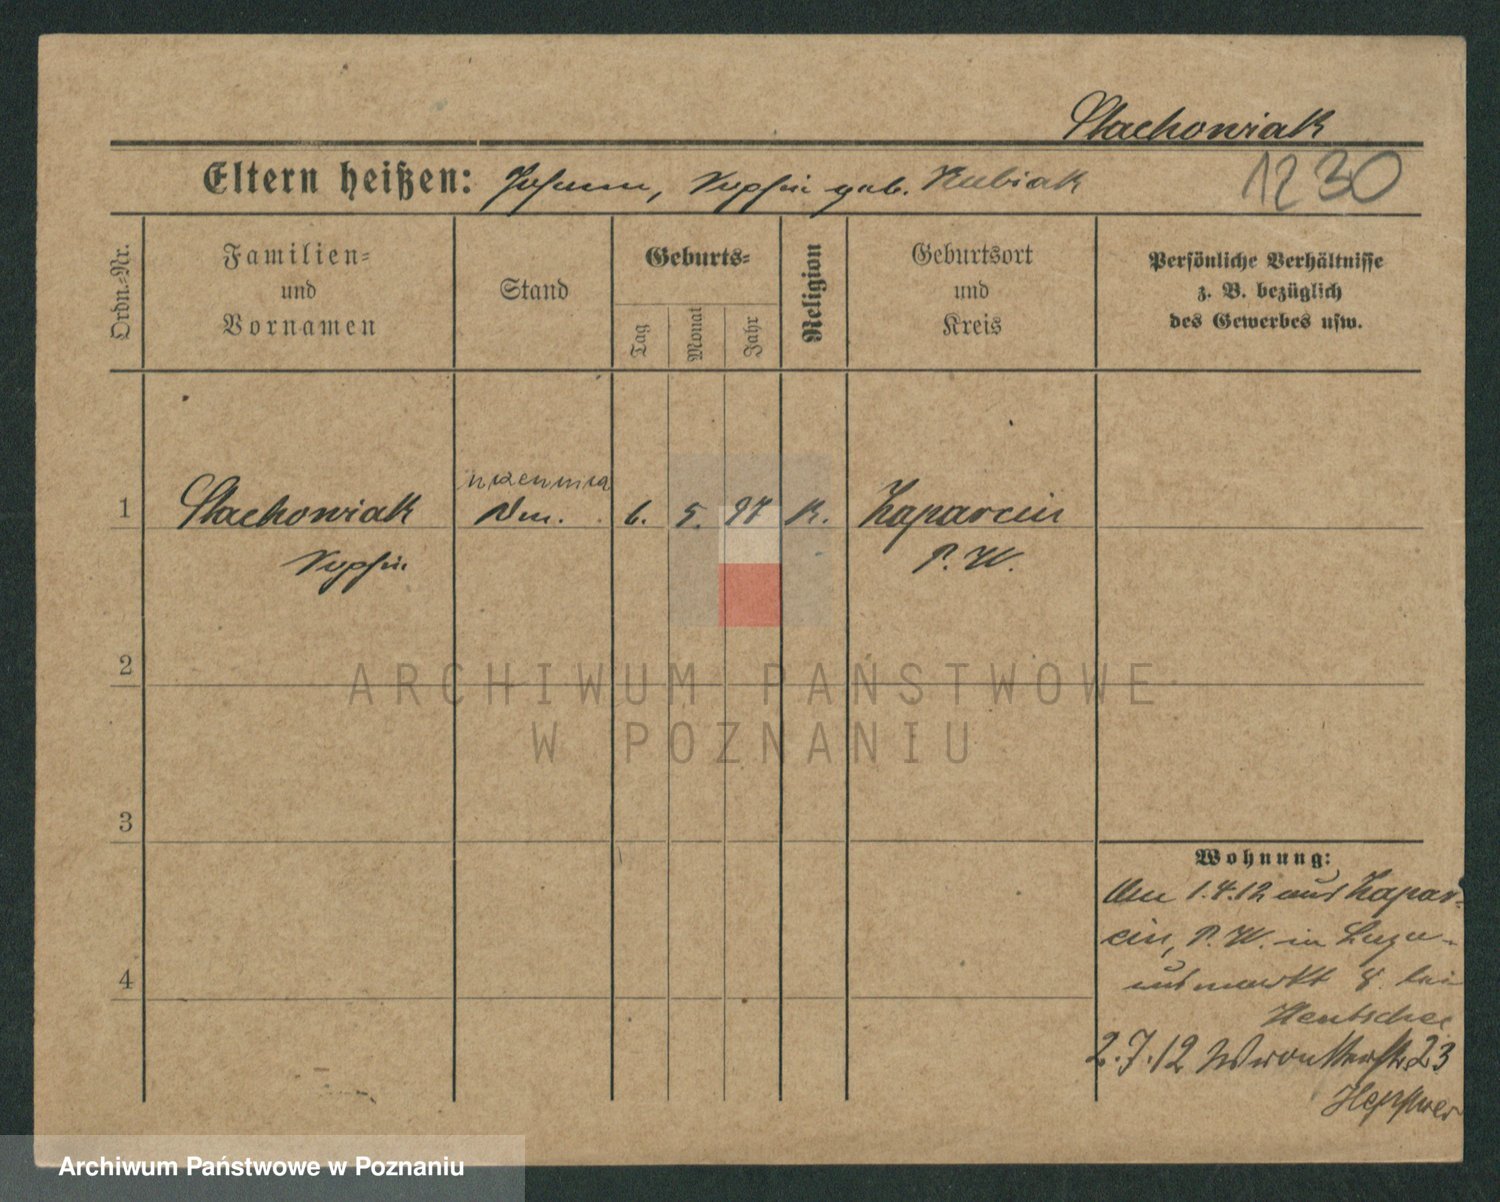 Stachowiak
1230
Eltern heißen: Johann, Sophie geb. Kubiak
Ordn.=Nr.
Familien=
und
Vornamen
Stand
Geburts=
Tag
Monat
Jahr
Religion
Geburtsort
und
Kreis
Persönliche Verhältnisse
z. B. bezüglich
des Gewerbes usw.
uczennica
1 Stachowiak 6. 5. 97 K. Zaparcin
Sophie P. W.
2
3
4
Wohnung:
Am 1.4.12 aus Zapar=
cin, P. W. in
markt 8. bei
2.7.12 Wronkerstr. 23
ARCHIWUM PAŃSTWOWE
W POZNANIU
Archiwum Państwowe w Poznaniu